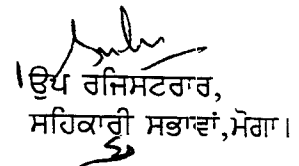 ਉਪ ਰਜਿਸਟਰਾਰ,
ਸਹਿਕਾਰੀ ਸਭਾਵਾਂ,ਮੋਗਾ।